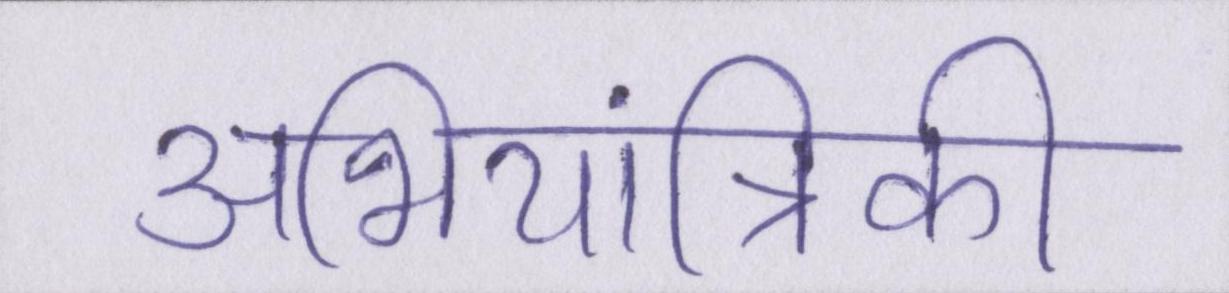 अभियांत्रिकी